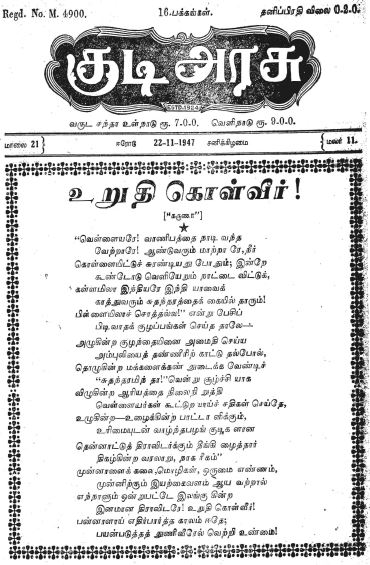 Regd. No. M. 4900. 16-பக்கங்கள். தனிப்பிரதி விலை 0-2-0.
குடி அரசு
ESTD-1924
வருட சந்தா உள்நாடு ரூ. 7-0-0. வெளிநாடு ரூ. 9-0-0.
மாலை 21 ஈரோடு 22-11-1947 சனிக்கிழமை மலர் 11.
உறுதி கொள்வீர்!
["கருணா"]
"வெள்ளையரே! வாணிபத்தை நாடி வந்த
வேற்றாரே! ஆண்டுவரும் மாற்றா ரே,நீர்
கொள்ளையிட்டுச் சுரண்டியது போதும்; இன்றே
கூண்டோடு வெளியேறும் நாட்டை விட்டுக்,
கள்ளமிலா இந்தியரே இந்தி யாவைக்
காத்துவரும் சுதந்தரத்தைக் கையில் தாரும்!
பிள்ளையிலாச் சொத்தல்ல!" என்று பேசிப்
பிடிவாதக் குழப்பங்கள் செய்த தாலே—
அழுகின்ற குழந்தையினை அமைதி செய்ய
அம்புலியைத் தண்ணீரிற் காட்டு தல்போல்,
தொழுகின்ற மக்களைக்கண் அடைக்க வேண்டிச்
"சுதந்தரமித் தா!"வென்று சூழ்ச்சி யாக
வீழுகின்ற ஆரியத்தை நிலைநி றுத்தி
வெள்ளையர்கள் கூட்டுற வாய்ச் சதிகள் செய்தே,
உழுகின்ற—உழைக்கின்ற பாட்டா ளிக்கும்,
உரிமையுடன் வாழ்ந்தபழங் குடிக ளான
தென்னாட்டுத் திராவிடர்க்கும் தீங்கி ழைத்தார்
திகழ்கின்ற வரலாறு, நாக ரீகம்"
முன்னாளைக் கலை,மொழிகள், ஒருமை எண்ணம்,
முன்னிற்கும் இயற்கைவளம் ஆய வற்றால்
எந்நாளும் ஒன்றுபட்டே இலங்கு கின்ற
இனமான திராவிடரே! உறுதி கொள்வீர்!
பன்னாளாய் எதிர்பார்த்த காலம் ஈதே;
பயன்படுத்தத் துணிவீரேல் வெற்றி உண்மை!